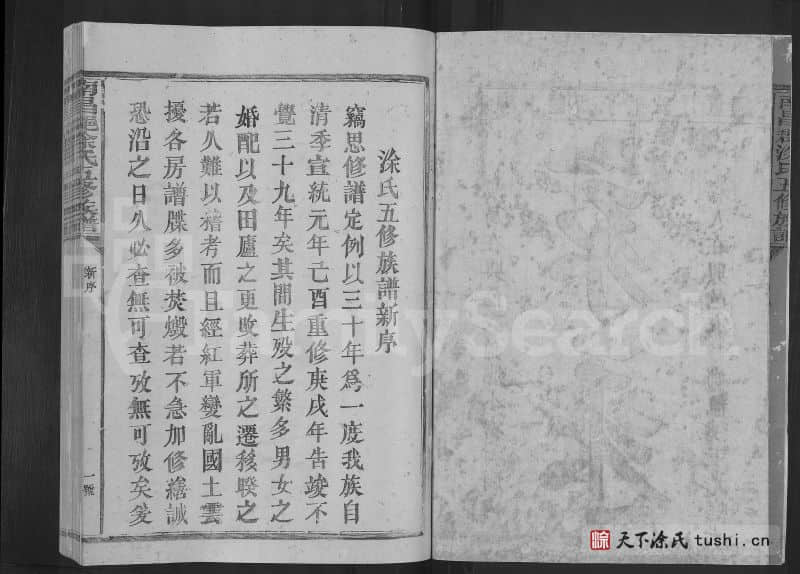 涂氏五修族譜新序
竊思修譜定例以三十年爲一度我族自
清季宣統元年亡酉重修庚戌年告竣不
覺三十九年矣其間生殁之繁多男女之
婚配以及田廬之更改葬所之遷移暌之
若久難以稽考而且經紅軍變亂國土雲
擾各房譜牒多被焚燬若不急加修繕誠
恐沿之日久必查無可查攷無可攷矣爰
新序
一號
FamilySearch
天下涂氏 tushi.cn